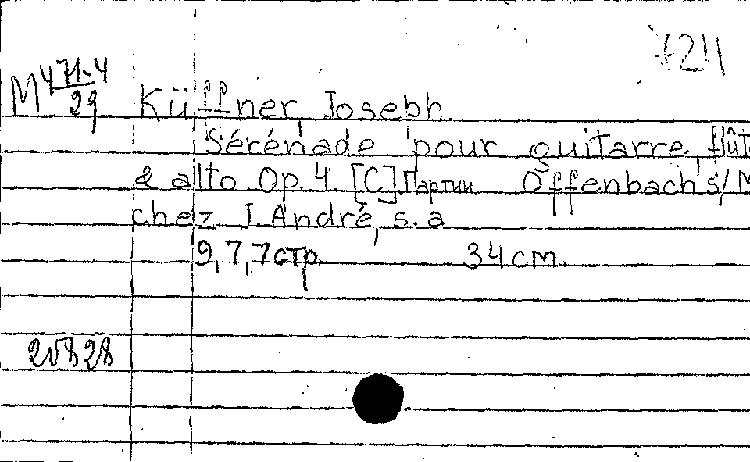 7211
М 471-4
29
Küffner, Joseph.
Sérénade pour guitarre, flût
& alto Op. 4 [C] Партии Offenbach s/M
chez J. André, s. a
9, 7, 7 стр. 34 см.
20828